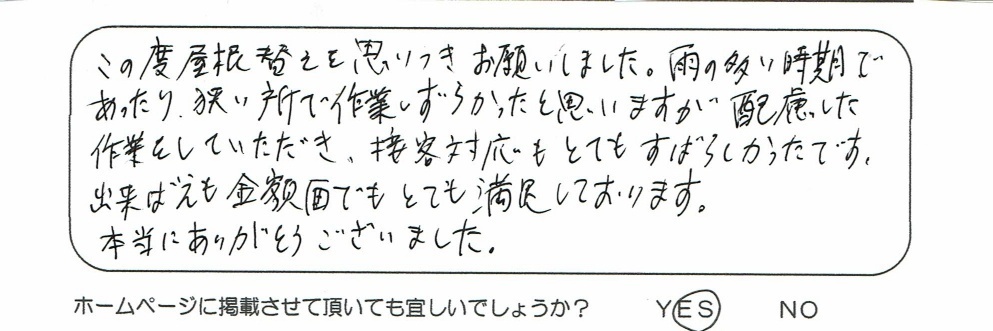 この度屋根替えを思いつきお願いしました。雨の多い時期で
あったり、狭い所で作業しずらかったと思いますが配慮した
作業をしていただき、接客対応もとてもすばらしかったです。
出来ばえも金額面でもとても満足しております。
本当にありがとうございました。
ホームページに掲載させて頂いても宜しいでしょうか？ YES NO